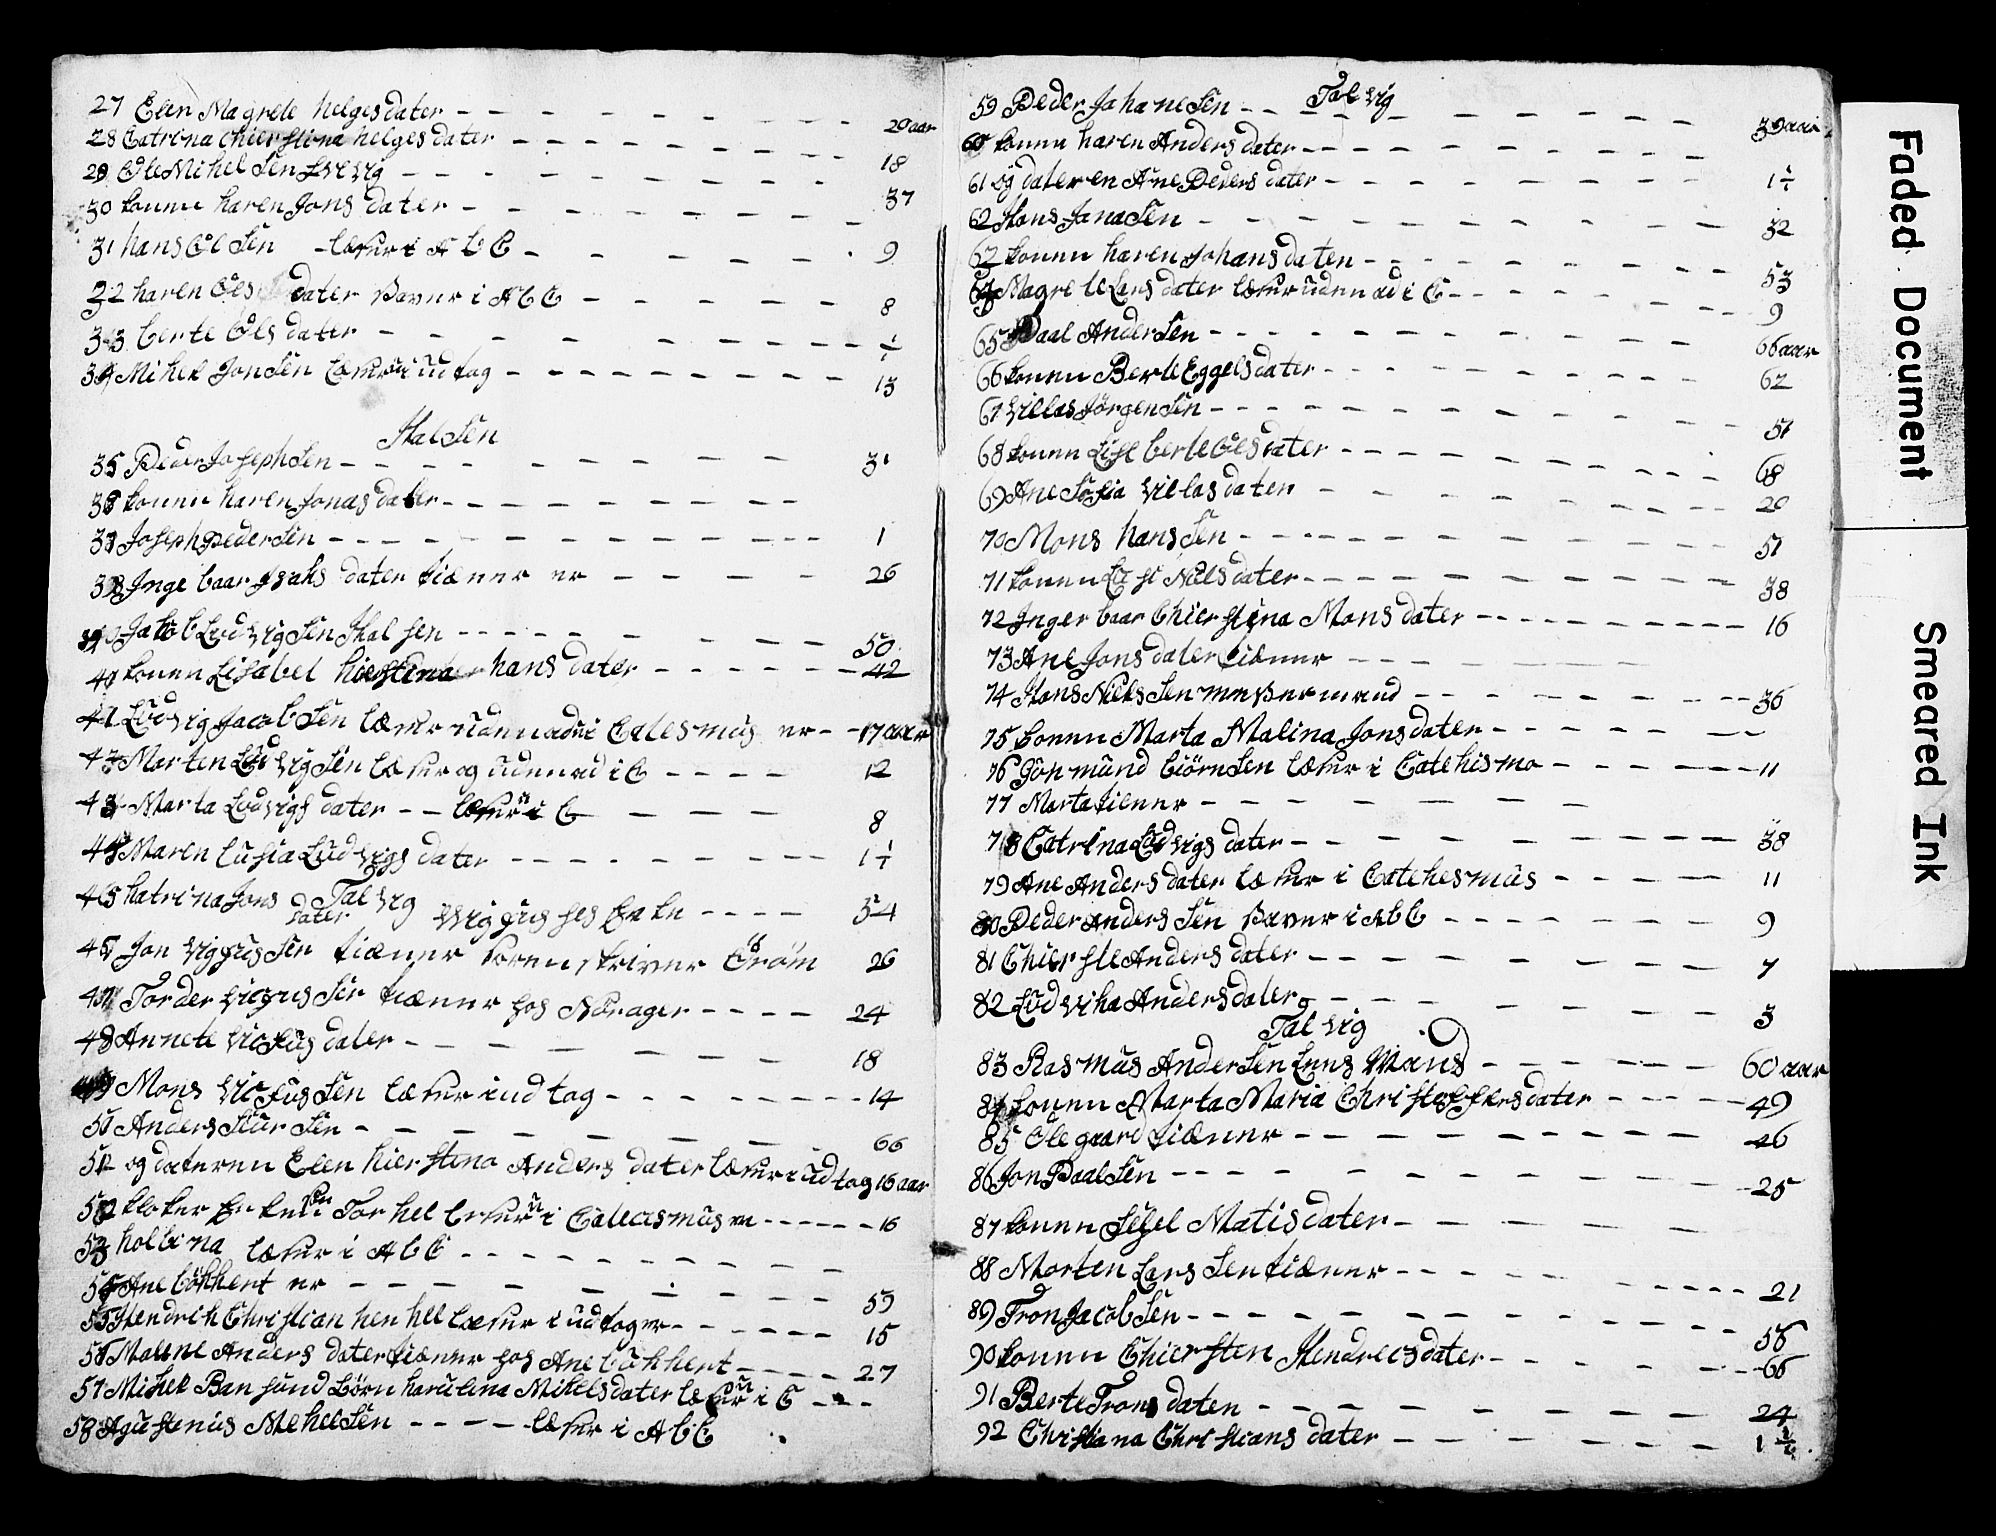 27 Elen Magrete helgesdater - - - 20 aar
28 Catrina Chierstina helgesdater - - - 18
29 Ole Mihel Sen - - - 37
30 konnen karen Jons dater - - -
31 hans Ole Sen læser i A b C - - - 9
32 karen Ols dater staver i A b C - - - 8
33 berte Ols dater - - -
34 Mihel Jon Sen læser i udtog - - - 13
Stal Sen
35 Peder Joseph Sen - - - 31
36 konnen karen Jonas dater - - -
37 Joseph Peder Sen - - - 1
38 Inge baar Isaks dater tiæner er - - - 26
Jakob Ludvig Sen Stal sen - - - 50
40 konnen Lisabet hierstina hans dater - - - 42
Ludvig Jacob Sen læser udenad i Catesmus er - - 17 aar
Morten Ludvig Sen læser og udenad i C - - - 12
Marta Ludvigs dater - - læser i C - - - 8
Maren Lusia Ludvigs dater - - -
katrina Jons dater Tal vig Vigfuses Enke - - - 54
Jon Vigfus Sen tiæner sorenskriver - - 26
Torder Vigfus Sen tiæner hos Norager - - - 24
48 Annete Vicfus dater - - - 18
Mons Vicfus Sen læser i udtog - - - 14
50 Anders Stur Sen - - - 66
og dateren Elen hierstina Anders dater læser i udtog 16 aar
kloker Enken Torkel læser i Cateasmus - - - 16
holbina læser i A b C - - -
Ane bøkkert er - - - 59
Hendrik Christian læser i udtog er - - - 15
Malene Anders dater tiæner hos Ane bøkkert - - - 27
57 Mihel Ban sund børn karulina Mikels dater læser i C - - -
58 Agustenus Mehel Sen - - - læser i A b C
59 Peder Johane Sen - - Tal vig - - - 30 aar
60 konnen karen Anders dater - - -
61 og dateren Ane Peders dater - - -
62 Hans Jona Sen - - - 32
konnen karen Johans dater - - - 53
Magrete Lars dater læser udenad i C - - - 9
65 Paal Ander Sen - - - 66 aar
66 konnen Berte Eggels dater - - - 62
67 Villas Jørgen Sen - - - 51
68 konnen Lise berte Ols dater - - - 68
69 Ane Sofia Villas dater - - - 20
70 Mons hans Sen - - - 51
71 konnen Lise Niels dater - - - 38
72 Inger baar Chierstina Mons dater - - - 16
73 Ane Jons dater tiæner - - -
74 Hans Niels Sen - - - 36
75 konnen Marta Malina Jons dater - - -
76 Gonmund biørn Sen læser i Catehismo - - - 11
77 Marta tiener - - -
78 Catrina Ludvigs dater - - - 38
79 Ane Anders dater læser i Catehesmus - - - 11
80 Peder Anders Sen staver i A b C - - - 9
81 Chierste Anders dater - - - 7
82 Ludvika Anders dater - - - 3
Tal vig
83 Rasmus Ander Sen Lens Mand - - - 60 aar
84 konnen Marta Maria Christoffers dater - - - 49
85 Ole gaard tiæner - - - 26
86 Jon Paal Sen - - - 25
87 konnen Sesel Matis dater - - -
88 Morten Lars Sen tiæner - - - 21
89 Tron Jacob Sen - - - 56
90 konnen Chiersten Hendrecs dater - - - 66
91 Berte Trons dater - - - 24
92 Christiana Christians dater - - - 1
Faded Document
Smeared Ink